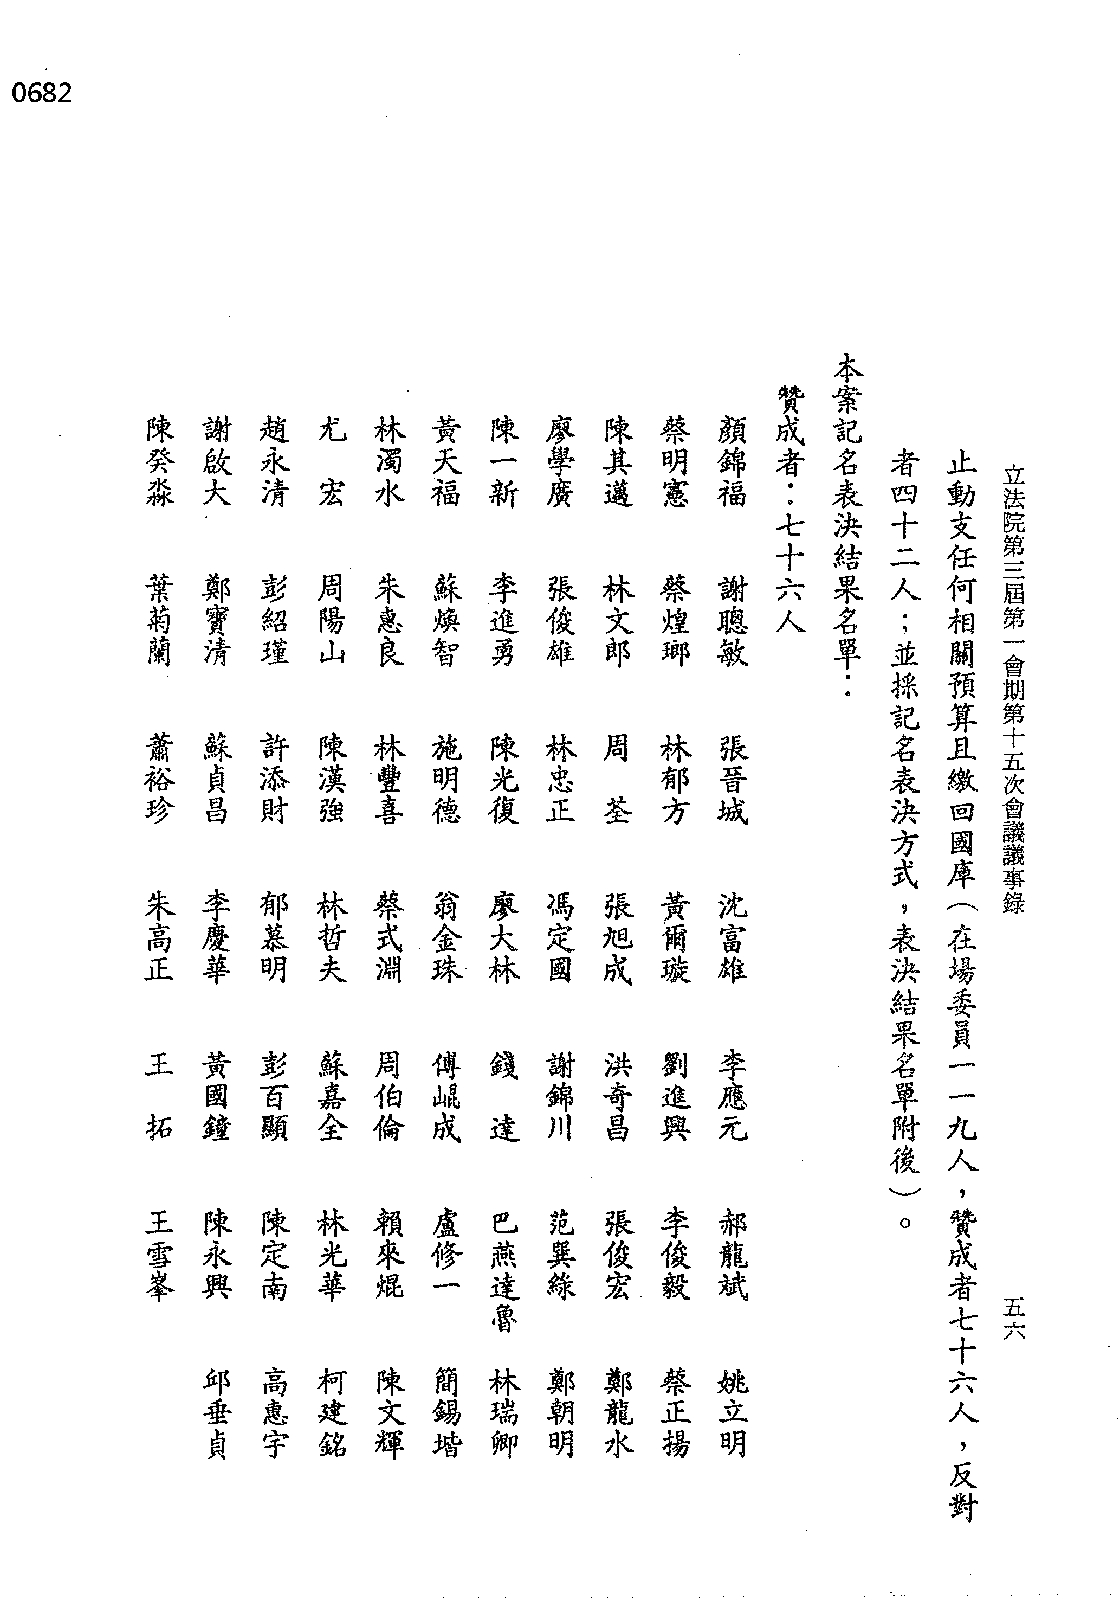 0682
立法院第三屆第一會期第十五次會議議事錄
五六
止動支任何相關預算且繳回國庫（在場委員一一九人，贊成者七十六人，反對
者四十二人；並採記名表決方式，表決結果名單附後）。
本案記名表決結果名單：
贊成者：七十六人
顏錦福 謝聰敏 張晉城 沈富雄 李應元 郝龍斌 姚立明
蔡明憲 蔡煌瑯 林郁方 黃爾璇 劉進興 李俊毅 蔡正揚
陳其邁 林文郎 周 荃 張旭成 洪奇昌 張俊宏 鄭龍水
廖學廣 張俊雄 林忠正 馮定國 謝錦川 范巽綠 鄭朝明
陳一新 李進勇 陳光復 廖大林 錢 達 巴燕達魯 林瑞卿
黃天福 蘇煥智 施明德 翁金珠 傅崐成 盧修一 簡錫堦
林濁水 朱惠良 林豐喜 蔡式淵 周伯倫 賴來焜 陳文輝
尤 宏 周陽山 陳漢強 林哲夫 蘇嘉全 林光華 柯建銘
趙永清 彭紹瑾 許添財 郁慕明 彭百顯 陳定南 高惠宇
謝啟大 鄭寶清 蘇貞昌 李慶華 黃國鐘 陳永興 邱垂貞
陳癸淼 葉菊蘭 蕭裕珍 朱高正 王 拓 王雪峯